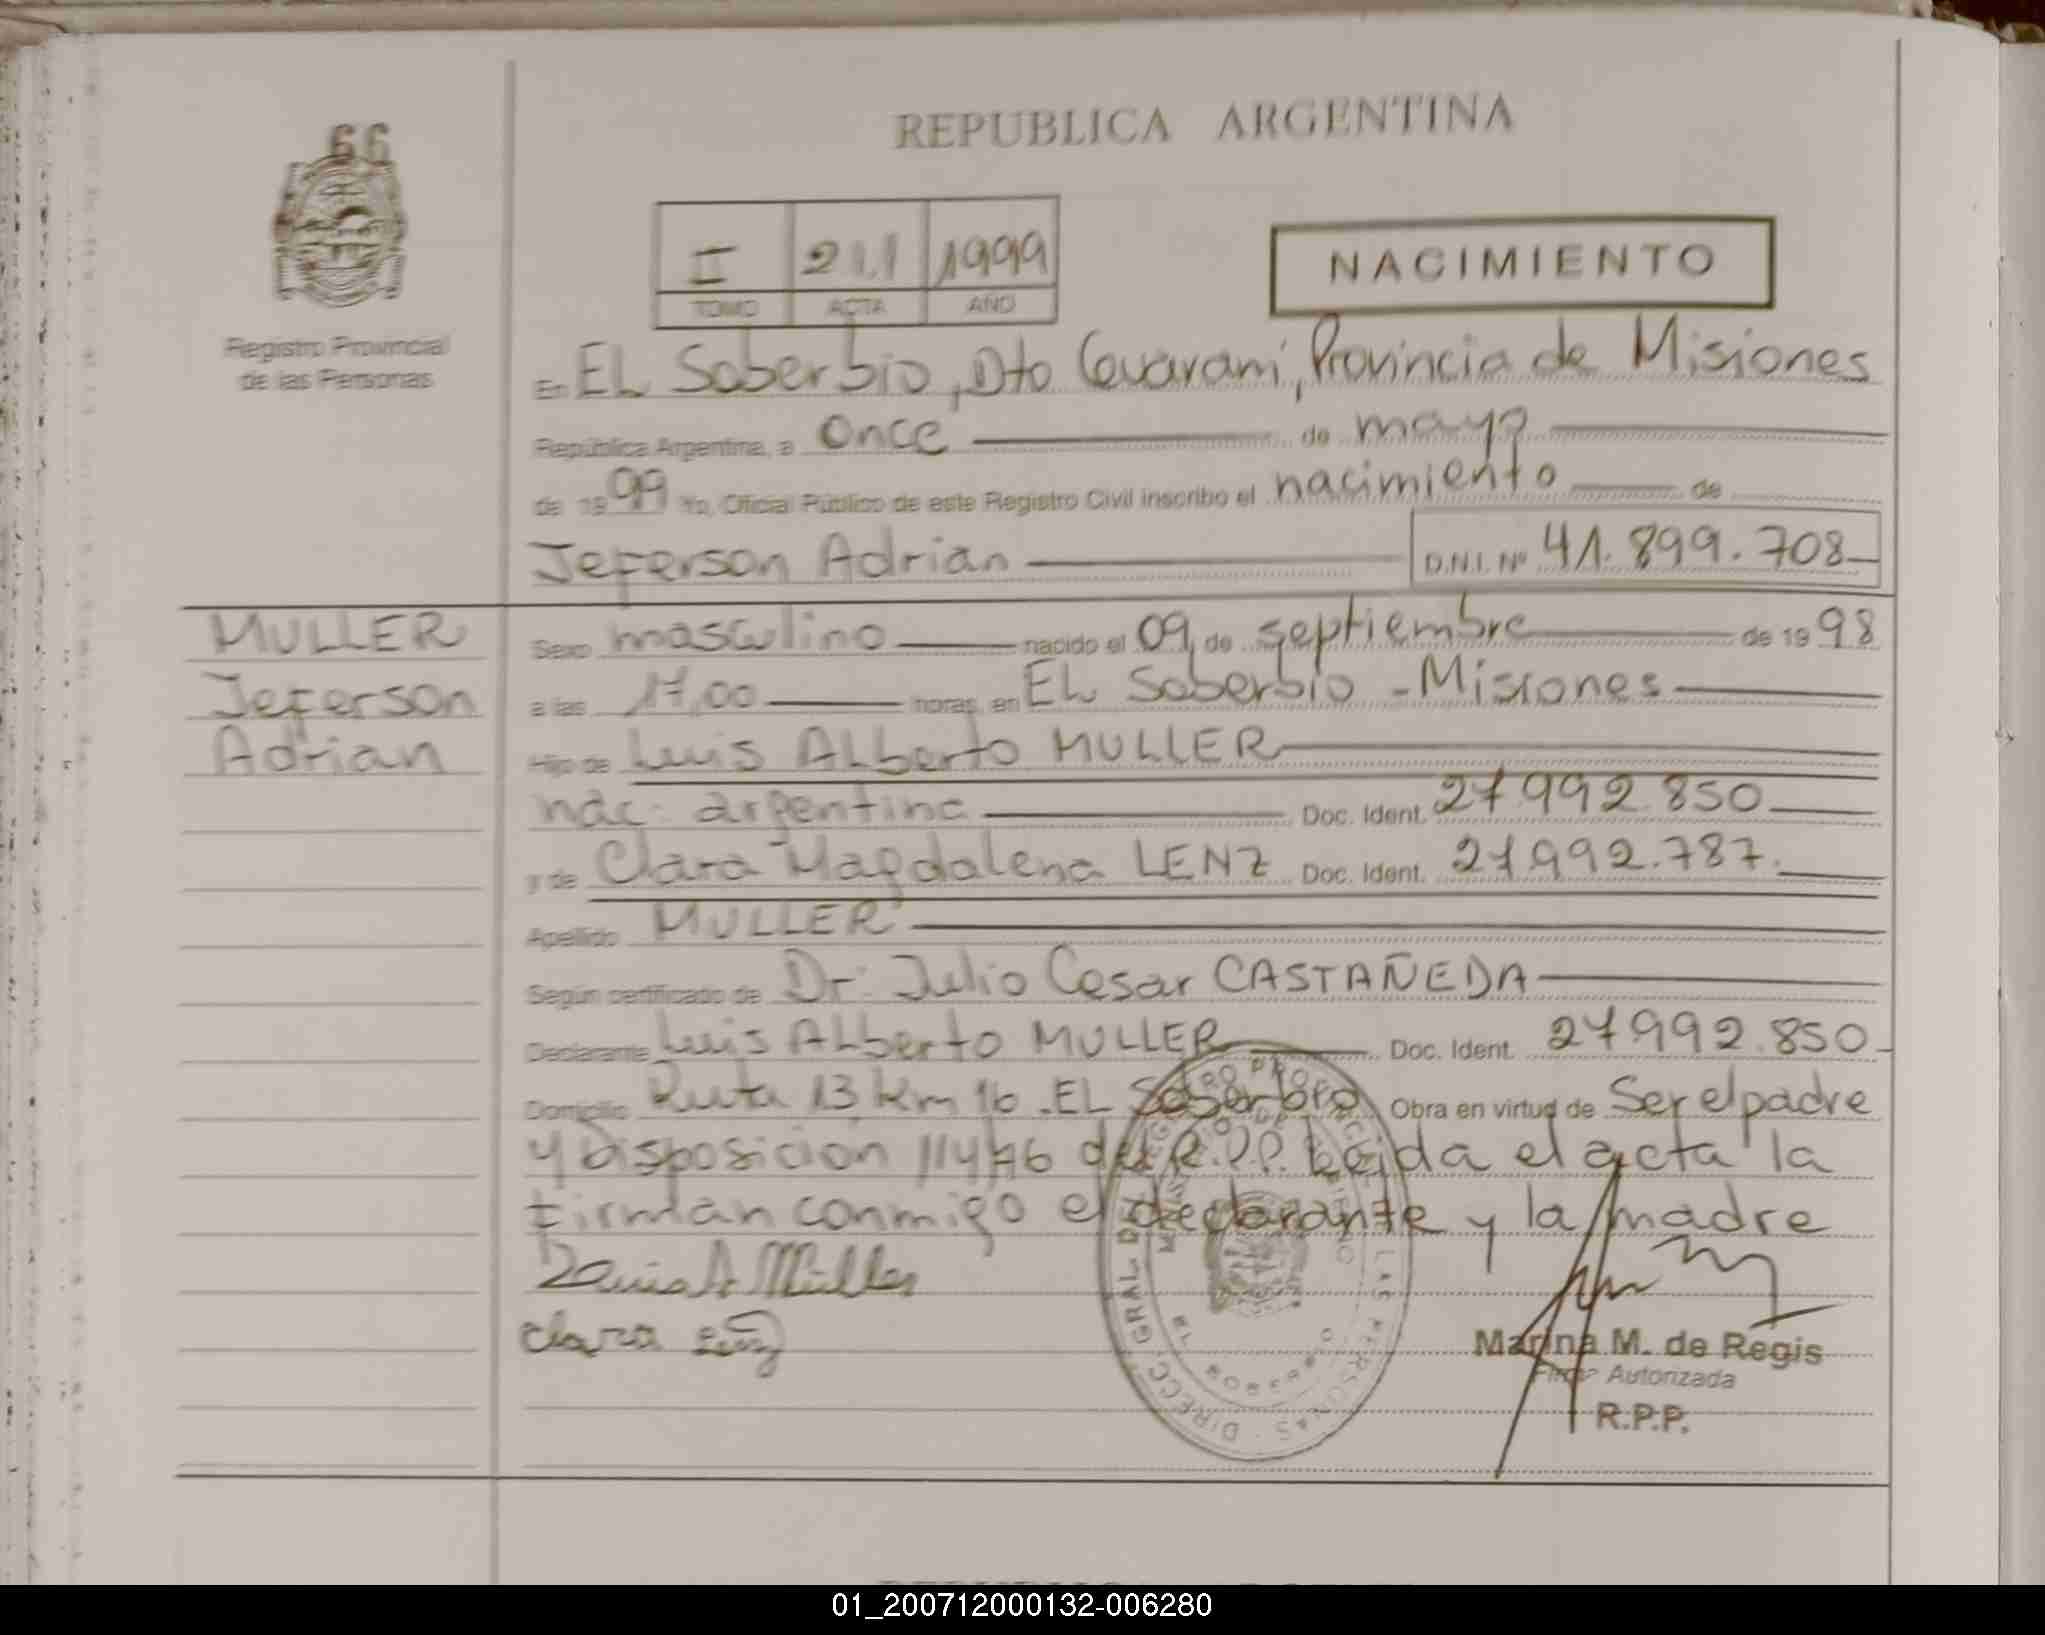 66
REPUBLICA ARGENTINA
I 211 1999
TOMO ACTA AÑO
NACIMIENTO
Registro Provincial
de las Personas
En EL Soberbio, Dto Guaraní, Provincia de Misiones
República Argentina, a once de mayo
de 1999 Yo, Oficial Público de este Registro Civil inscribo el nacimiento de
Jeferson Adrian D.N.I. Nº 41.899.708
MULLER
Jeferson
Adrian
Sexo masculino nacido el 09 de septiembre de 1998
a las 17,00 horas, en EL Soberbio - Misiones
Hijo de Luis ALberto MULLER
nac. argentina Doc. Ident. 27.992.850
y de Clara Magdalena LENZ Doc. Ident. 27.992.787.
Apellido MULLER
Según certificado de Dr. Julio Cesar CASTAÑEDA
Declarante Luis ALberto MULLER Doc. Ident. 27.992.850
Domicilio Ruta 13 Km 16 . EL Soberbio Obra en virtud de Ser el padre
y Disposición 114/76 del R.P.P. Leida el acta la
firman conmigo el declarante y la madre
Luis A Müller
Clara Lenz
DIRECC. GRAL DEL REGISTRO PROVINCIAL DE LAS PERSONAS
MINISTERIO DE GOBIERNO
EL SOBERBIO
Marina M. de Regis
Firma Autorizada
R.P.P.
01_200712000132-006280